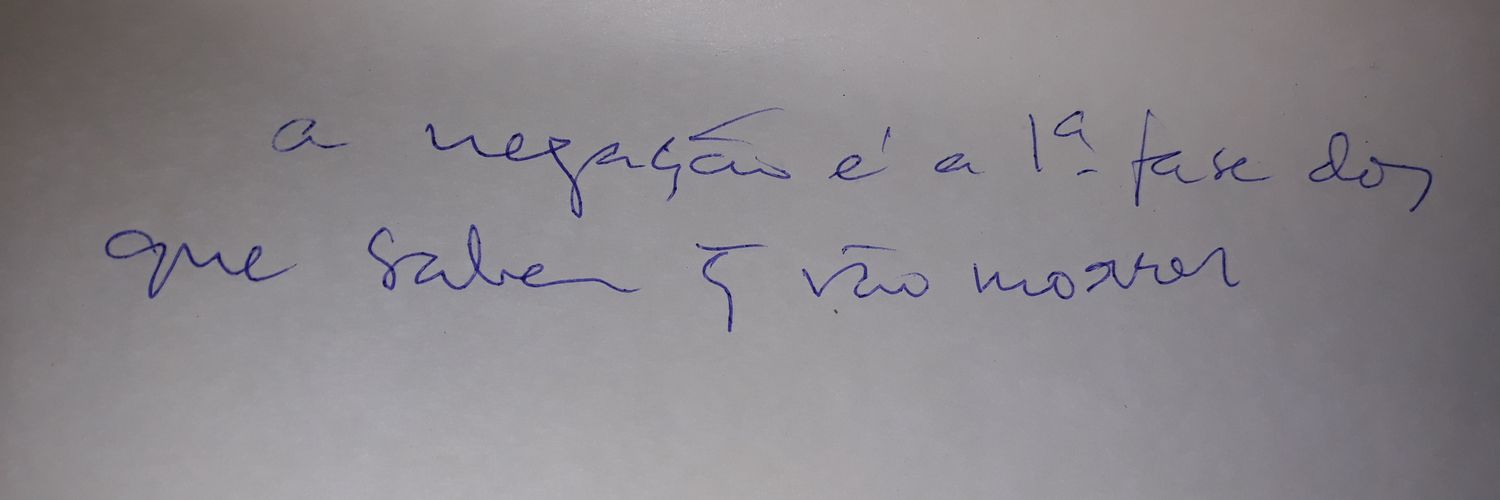 a negação é a 1ª fase dos
que sabem q̄ vão morrer